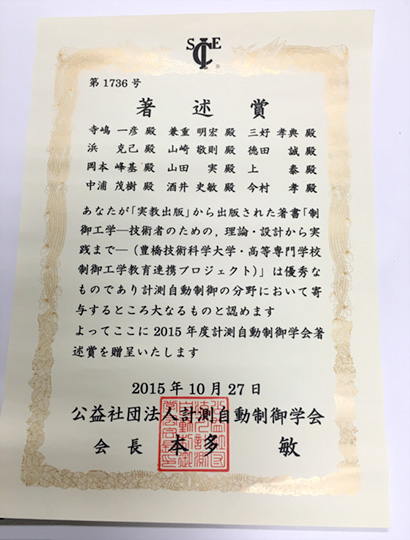 SICE
第1736号
著述賞
寺嶋 一彦 殿 兼重 明宏 殿 三好 孝典 殿
浜 克己 殿 山崎 敬則 殿 徳田 誠 殿
岡本 峰基 殿 山田 実 殿 上 泰 殿
中浦 茂樹 殿 酒井 史敏 殿 今村 孝 殿
あなたが「実教出版」から出版された著書「制
御工学―技術者のための，理論・設計から実
践まで―（豊橋技術科学大学・高等専門学校
制御工学教育連携プロジェクト）」は優秀な
ものであり計測自動制御の分野において寄
与するところ大なるものと認めます
よってここに2015年度計測自動制御学会著
述賞を贈呈いたします
2015年10月27日
公益社団法人計測自動制御学会
会長 本多 敏